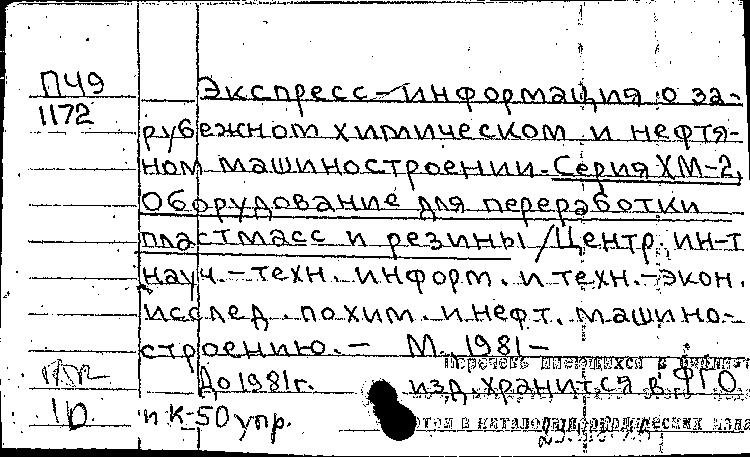 П49
1172
Экспресс-информация о за-
рубежном химическом и нефтя-
ном машиностроении. Серия ХМ-2,
Оборудование для переработки
пластмасс и резины / Центр. ин-т
науч.-техн. информ. и техн.-экон.
исслед. по хим. и нефт. машино-
строению. - М., 1981-
Перечень имеющихся в
До 1981г. изд. хранится в ФГО
10 и К-50 упр.
в каталоге периодических изда